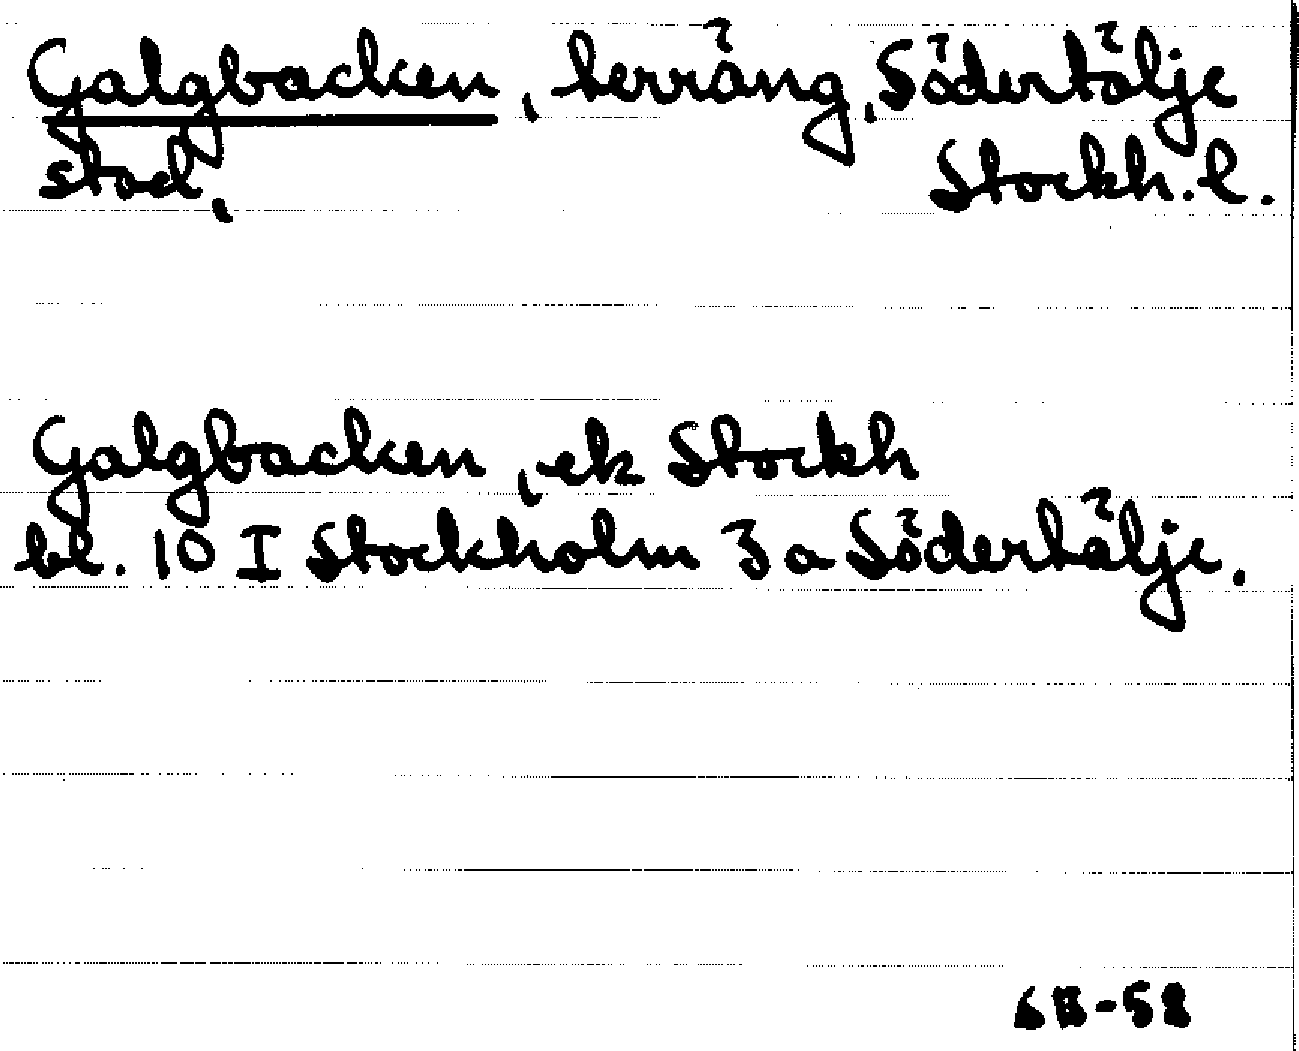 Galgbacken, terräng, Södertälje
stad, Stockh. l.
Galgbacken, ek Stockh
bl. 10 I Stockholm 3 a Södertälje.